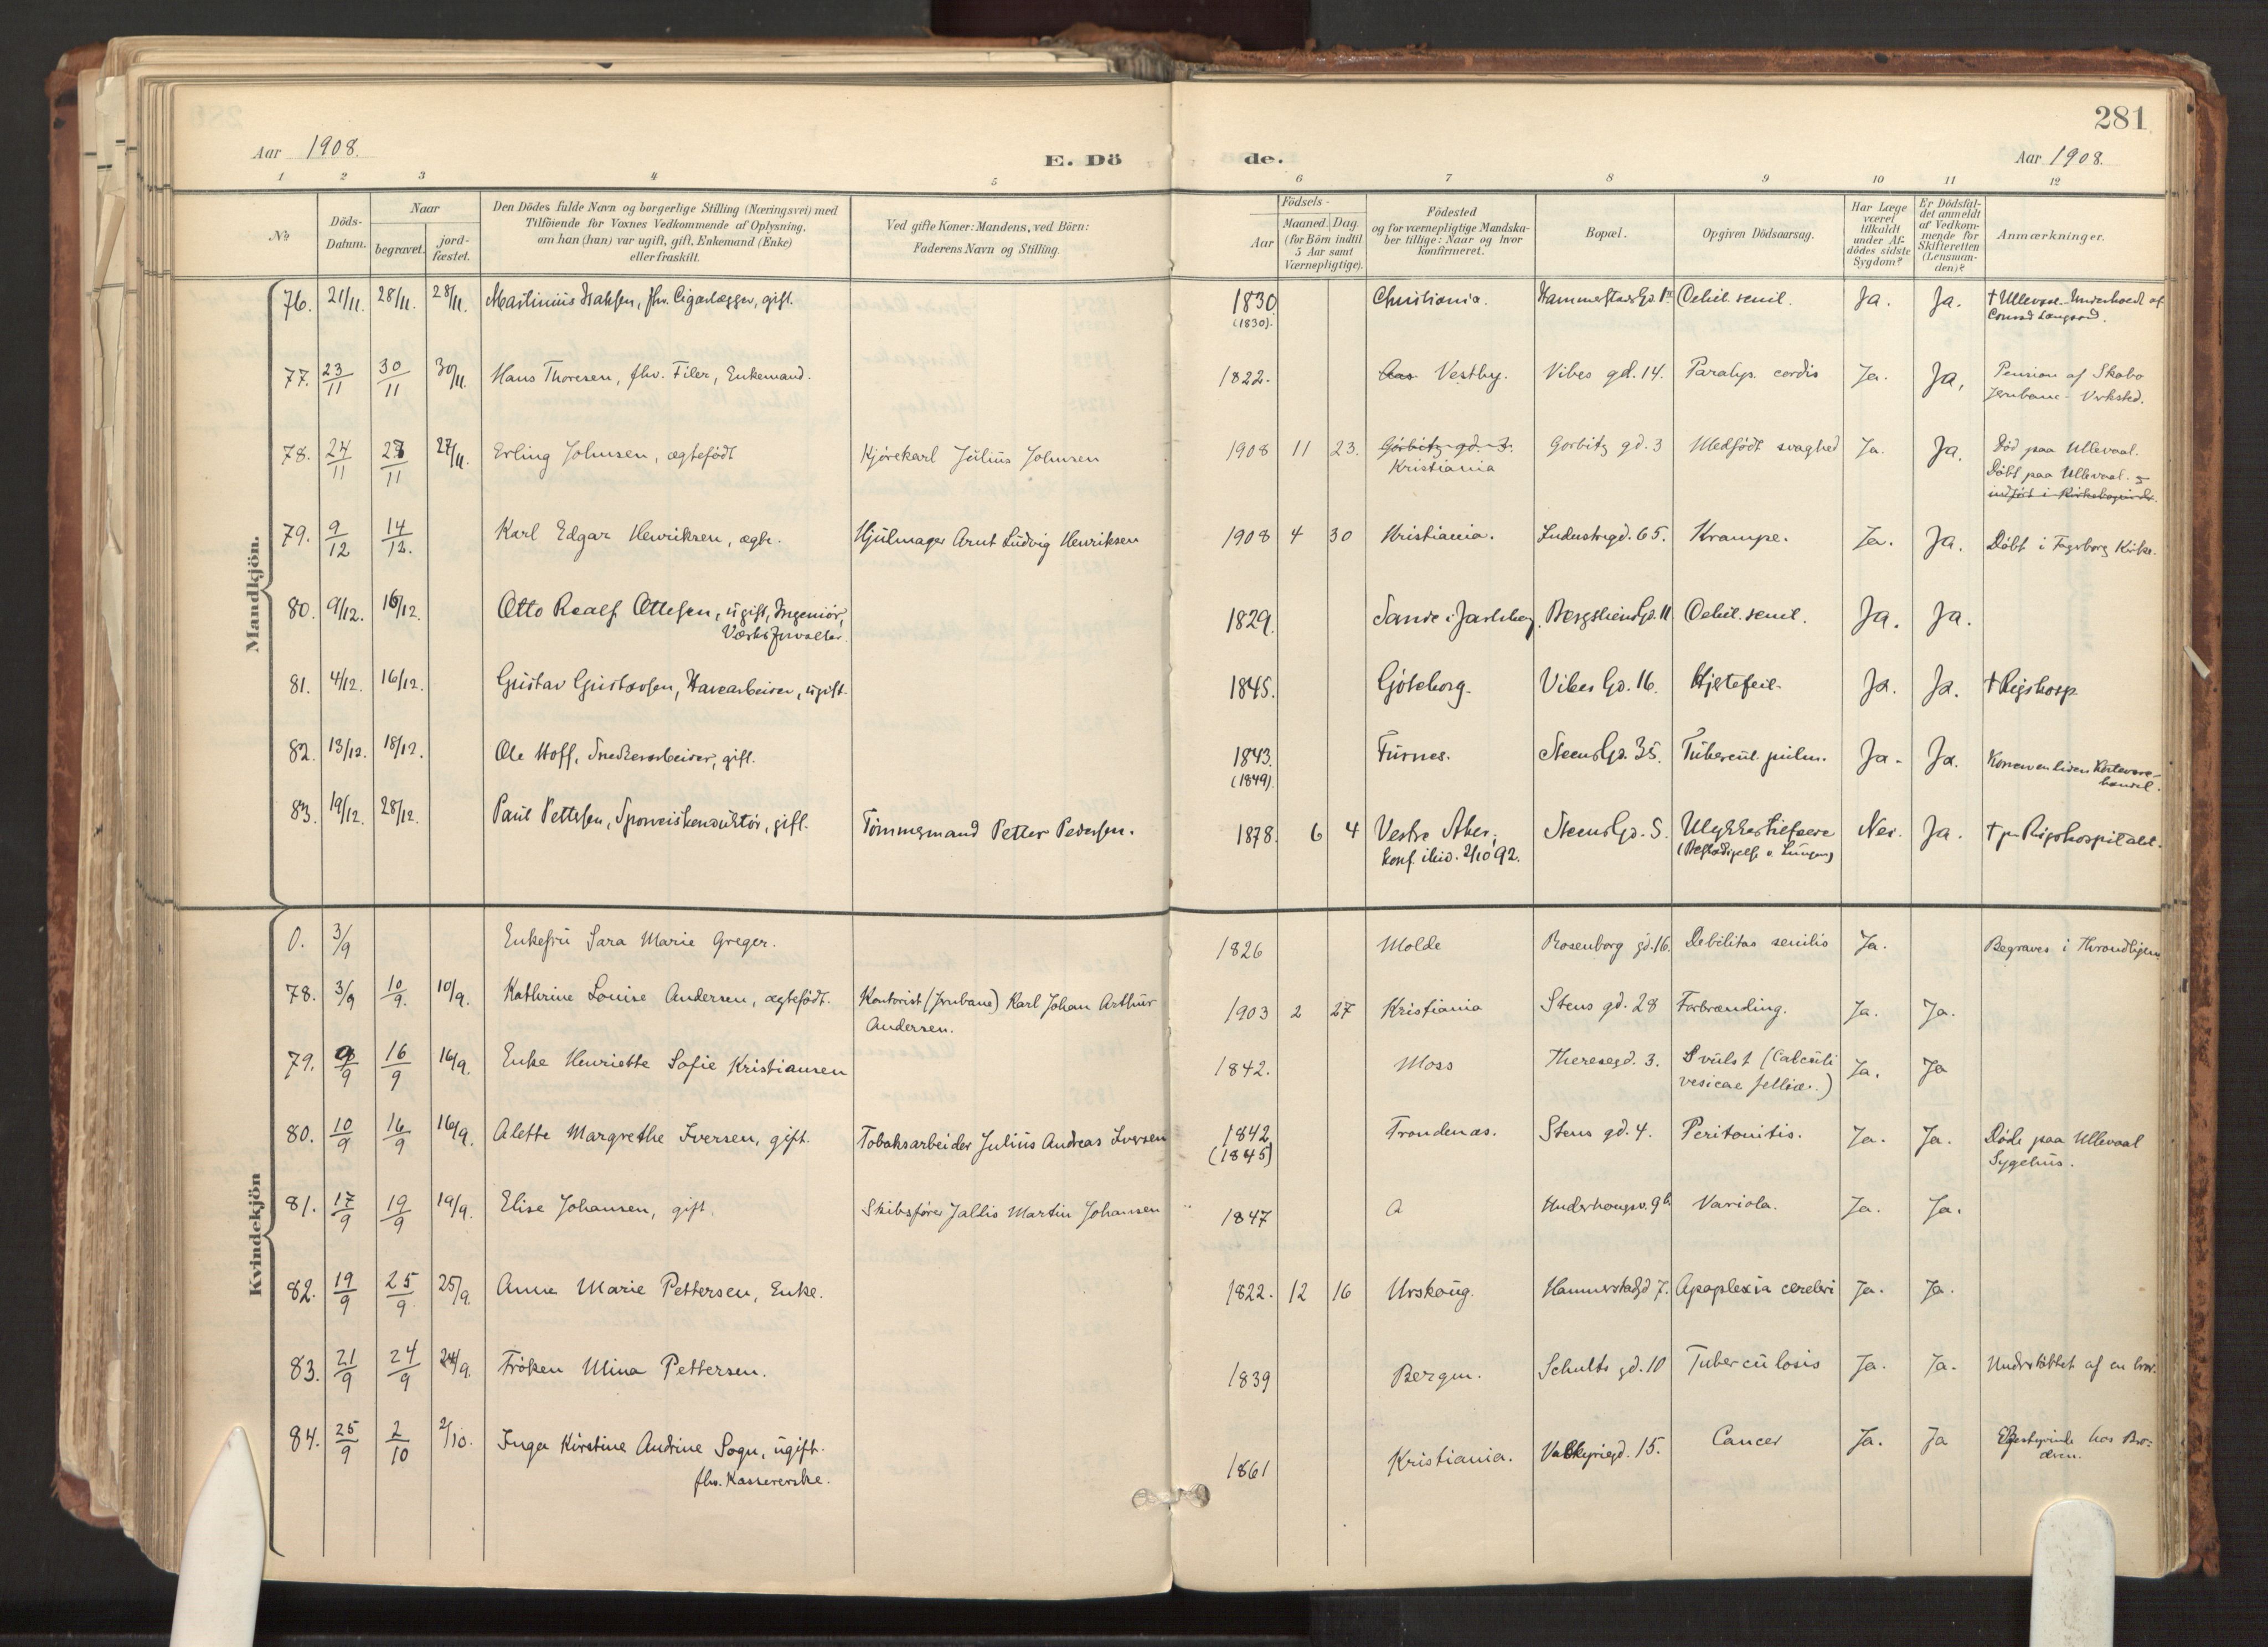 281
Aar 1908.
E. Dö
de.
Aar 1908.
1 2 3 4 5 6 7 8 9 10 11 12
No
Döds-
Datum.
Naar
begravet.
jord-
fæstet.
Den Dödes fulde Navn og borgerlige Stilling (Næringsvei) med
Tilföiende for Voxnes Vedkommende af Oplysning,
om han (hun) var ugift, gift, Enkemand (Enke)
eller fraskilt.
Ved gifte Koner: Mandens, ved Börn:
Faderens Navn og Stilling.
Födsels-
Aar
Maaned. Dag
(for Börn indtil
5 Aar samt
Værnepligtige).
Födested
og for værnepligtige Mandska-
ber tillige: Naar og hvor
konfirmeret.
Bopæl.
Opgiven Dödsaarsag.
Har Læge
været
tilkaldt
under Af-
dödes sidste
Sygdom?
Er Dödsfal-
det anmeldt
af Vedkom-
mende for
Skifteretten
(Lensman-
den)?
Anmærkninger.
Mandkjön.
76. 21/11. 28/11. 28/11. Martinius Isaksen, fhv. Cigarlægger, gift. 1830 Christiania. Debil. senil. Ja. Ja. † Ullevaal. Underholdt af
(1830). Conrad Langaard.
77. 23/11 30/11 30/11. Hans Thoresen, fhv. Filer, Enkemand. 1822. Aas Vestby. Vibes gd. 14. Paralys. cordis Ja. Ja. Pension af Skabo
Jernbane-Verksted.
78. 24/11 27/11 27/11. Erling Johnsen, ægtefödt Kjörekarl Julius Johnsen 1908 11 23. Görbitz gd. 3. Gorbitz gd. 3 Medfödt svaghed Ja. Ja. Död paa Ullevaal.
Kristiania Döbt paa Ullevaal.
79. 9/12 14/12. Karl Edgar Henriksen, ægte. Hjulmager Arnt Ludvig Henriksen 1908 4 30 Kristiania. Industrigd. 65. Krampe. Ja. Ja. Döbt i Fagerborg Kirke.
80. 9/12. 16/12. Otto Roalf Ottesen, ugift, Ingeniör, 1829. Sande i Jarlsberg. Bergsliens Gd. 11 Debil. senil. Ja. Ja.
Værksforvalter.
81. 4/12. 16/12. Gustav Gustavsen, Havearbeider, ugift. 1845. Göteborg. Vibes Gd. 16. Hjertefeil. Ja. Ja. † Rigshosp.
82. 13/12. 18/12. Ole Hoff, Snedkerarbeider, gift. 1843. Furnes. Steens Gd. 35. Tubercul. pulm. Ja. Ja. Konen en liden
(1849) handel.
83. 19/12. 28/12. Paul Pettersen, Sporveiskonduktör, gift. Tömmermand Petter Pedersen. 1878. 6 4 Vestre Aker; Steens Gd. 5. Ulykkestilfælde Nei. Ja. † paa Rigshospitalet.
konf. ibid. 2/10 92.
Kvindekjön
0. 3/9 Enkefru Sara Marie Greger. 1826 Molde Rosenborg gd. 16. Debilitas senilis Ja. Begraves i Throndhjem
78. 3/9 10/9. 10/9. Kathrine Louise Andersen, ægtefödt. Kontorist (Jrnbane) Karl Johan Arthur 1903 2 27 Kristiania Stens gd. 28 Forbrænding. Ja. Ja.
Andersen.
79. 9/9 16/9 16/9. Enke Henriette Sofie Kristiansen 1842. Moss Theresegd. 3. Svulst (Calculi Ja. Ja
vesicae felliæ.)
80. 10/9 16/9 16/9. Alette Margrethe Iversen, gift. Tobaksarbeider Julius Andreas Iversen 1842 Trondenæs. Stens gd. 4. Peritonitis. Ja. Ja. Döde paa Ullevaal
(1845) Sygehus.
81. 17/9 19/9 19/9. Elise Johansen, gift. Skibsförer Martin Johansen 1847 Underhaugsv. 9b Variola. Ja. Ja.
82. 19/9 25/9 25/9. Anna Marie Pettersen, Enke. 1822. 12 16 Urskoug. Hammerstadgd 7. Apoplexia cerebri Ja. Ja.
83. 21/9 24/9 24/9. Fröken Mina Pettersen. 1839 Bergen. Schults gd. 10 Tuberculosis Ja. Ja. Understöttet af en bror.
84. 25/9 2/10 2/10. Inga Kirstine Andrine Sogn, ugift. 1861 Kristiania. Valkyriegd. 15. Cancer Ja. Ja hos Bro-
fhv. Kassererske. deren.